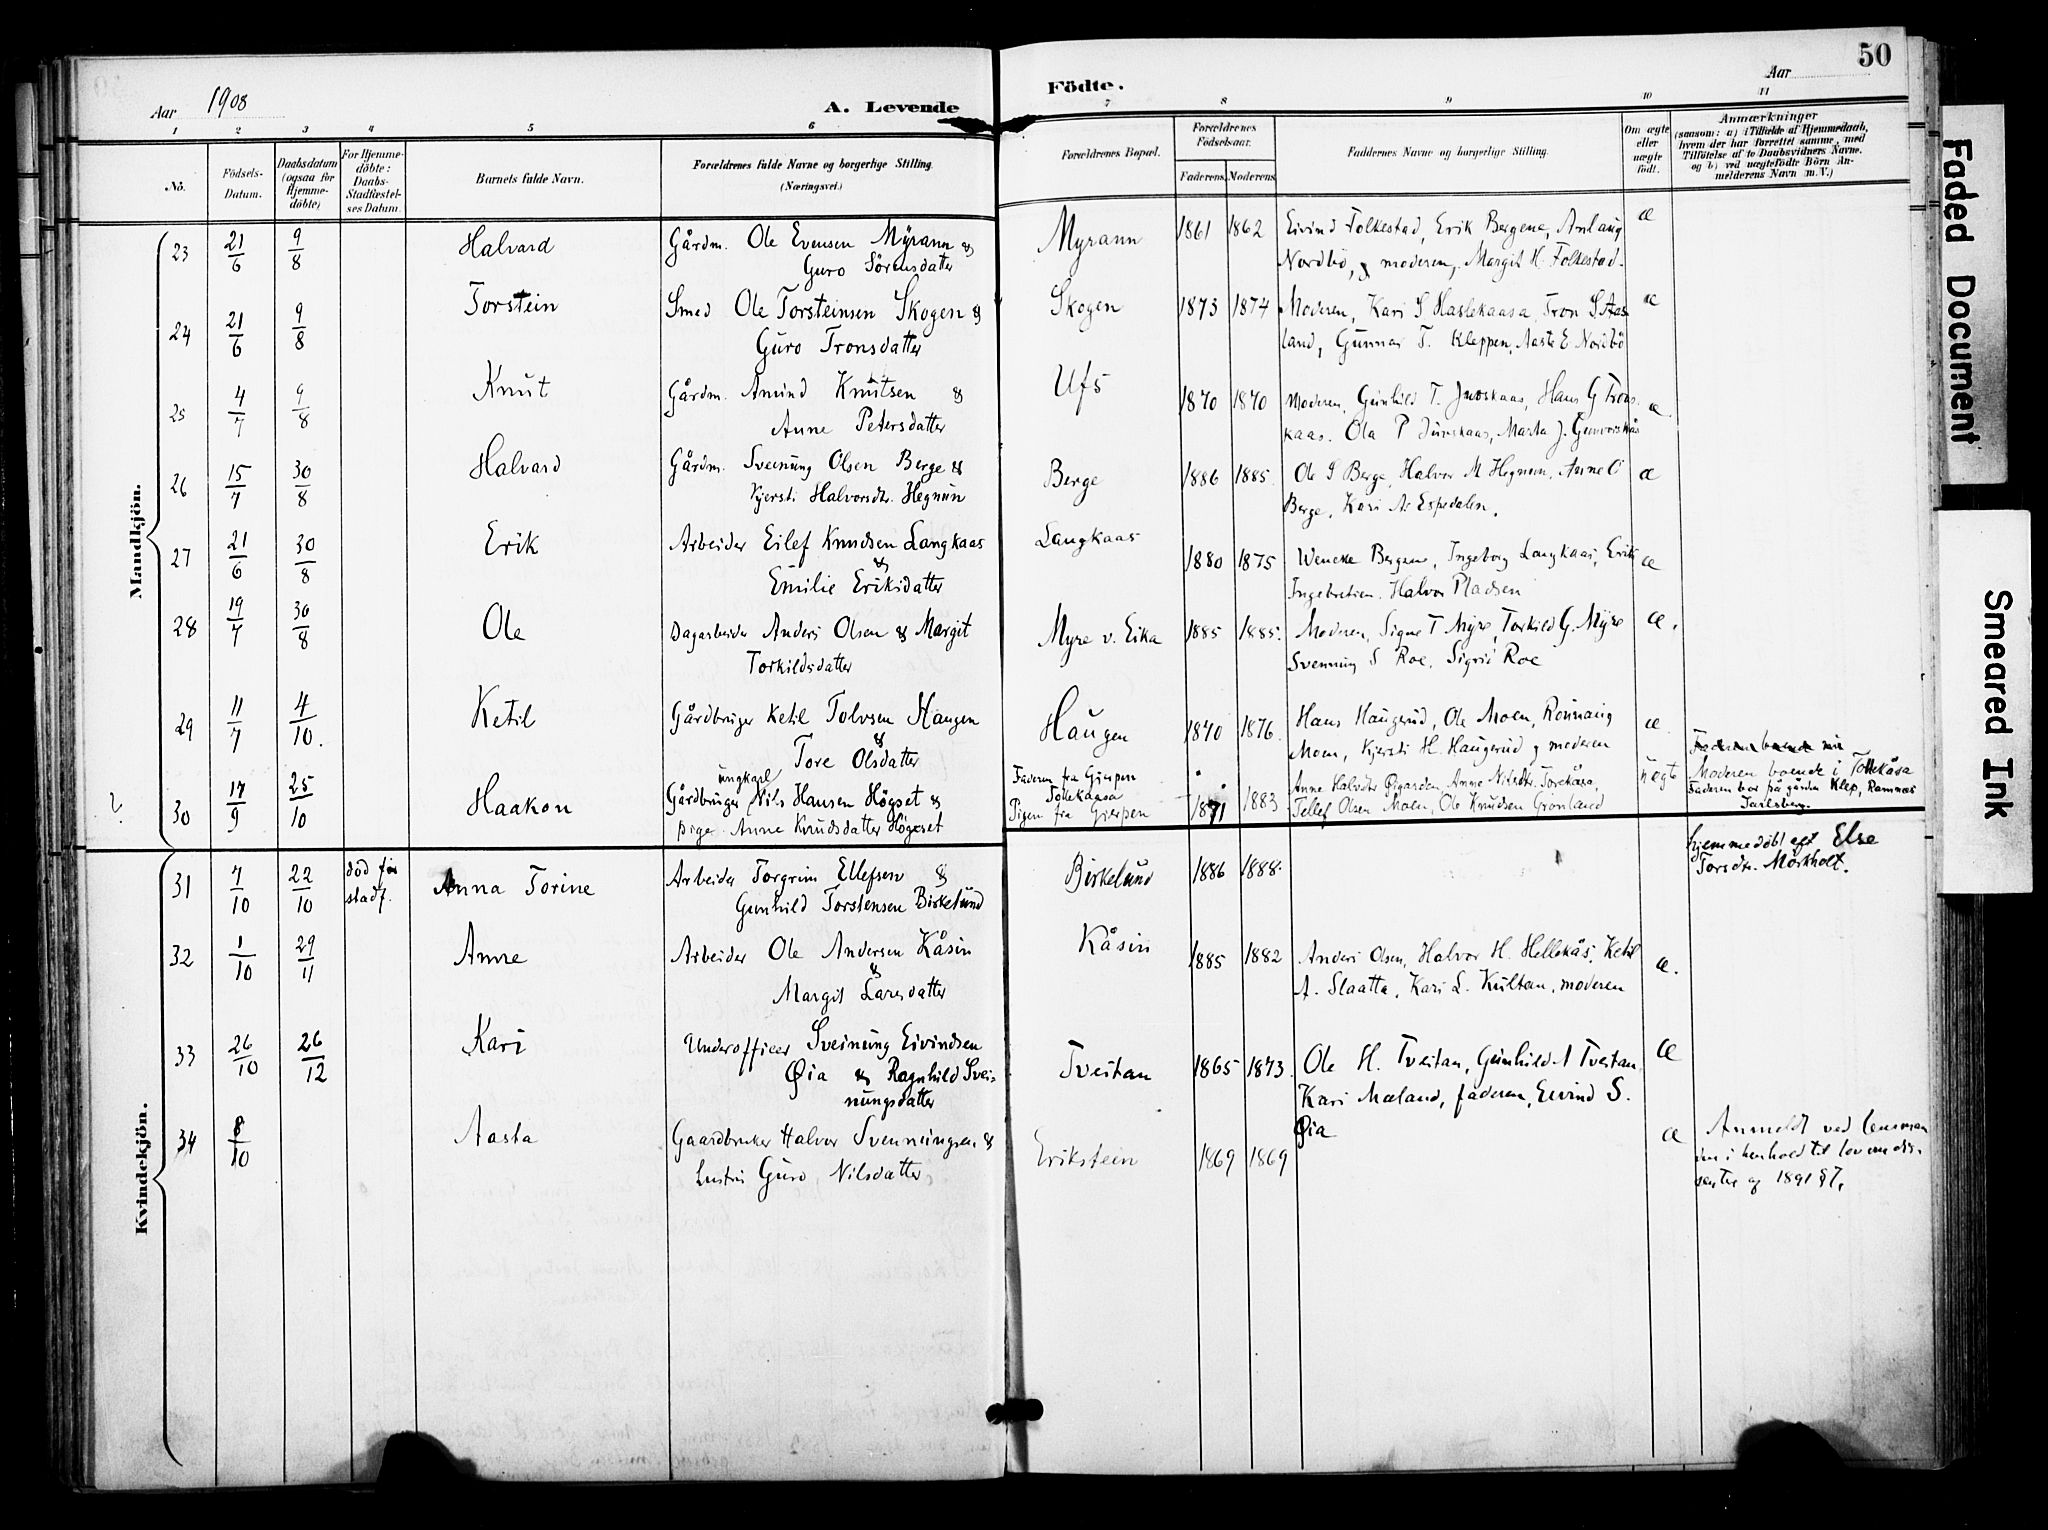 50
Aar 1908
A. Levende
Födte.
Aar
1 2 3 4 5 6 7 8 9 10 11
No.
Födsels-
Datum.
Daabsdatum
(ogsaa for
Hjemme-
döbte)
For Hjemme-
döbte:
Daabs-
Stadfæstel-
ses Datum.
Barnets fulde Navn.
Forældrenes fulde Navne og borgerlige Stilling.
(Næringsvei.)
Forældrenes Bopæl.
Forældrenes
Födselsaar.
Faderens. Moderens.
Faddernes Navne og borgerlige Stilling.
Om ægte
eller
uægte
födt.
Anmærkninger
(saasom: a) i Tilfælde af Hjemmedaab,
hvem der har forrettet samme, med
Tilföielse af to Daabsvidners Navne.
og b) ved uægtefödte Börn An-
melderens Navn (m. V.)
Mandkjön.
23 21/6 9/8 Halvard Gårdm. Ole Evensen Myrann &
Guro Sörensdatter
Myrann 1861 1862 Eivind Folkestad, Erik Bergene, Anlaug
Nordbö, & moderen, Margit H. Folkestad.
æ
24 21/6 9/8 Torstein Smed Ole Torsteinsen Skogen &
Guro Tronsdatter
Skogen 1873 1874 Moderen, Kari S Haslekaasa, Tron S Aas-
land, Gunnar T. Kleppen, Aaste E. Nordbö
æ
25 4/7 9/8 Knut Gårdm. Amund Knutsen &
Anne Petersdatter
Ufs 1870 1870 Moderen, Gunhild T. Juvskaas, Hans G Trons-
kaas. Ola P Juvskaas, Marta J. Gunvorskås
æ.
26 15/7 30/8 Halvard Gårdm. Sveinung Olsen Berge &
Kjersti Halvorsdtr. Hegnun
Berge 1886 1885. Ole S Berge, Halvor M Hegnun, Anne O
Berge, Kari A. Espedalen.
æ
27 21/6 30/8 Erik Arbeider Eilef Knudsen Langkaas
&
Emilie Eriksdatter
Langkaas 1880 1875 Wencke Bergene, Ingeborg Langkaas, Erik
Ingebretsen. Halvor Pladsen
æ
28 19/7 30/8 Ole Dagarbeider Anders Olsen & Margit
Torkildsdatter
Myre v. Eika 1885 1885. Moderen, Signe T Myre, Torkild G. Myre
Svennung S Roe, Sigrid Roe
æ.
29 11/7 4/10. Ketil Gårdbruger Ketil Tolvsen Haugen
&
Tore Olsdatter
Haugen 1870 1876. Hans Haugerud, Ole Moen, Rönnaug
Moen, Kjersti H. Haugerud & moderen
æ
?
30 17/9 25/10 Haakon ungkarl
Gårdbruger Nils Hansen Högset &
pige Anne Knudsdatter Högeset
Faderen fra Gjerpen
Tollekaasa
Pigen fra Gjerpen
1871 1883 Anne Halvdtr Øigarden, Anne Nilsdtr. Torekåsa,
Tellef Olsen Moen, Ole Knudsen Grönland
uægte
Moderen boende i Tollekåsa
Faderen bor på gården Klep, Ramnæs
Jarlsberg.
Kvindekjön.
31 7/10 22/10 död før
stadf.
Anna Torine Arbeider Torgrim Ellefsen &
Gunhild Torstensen Birkelund
Birkelund 1886 1888.
hjemmedöbt af Else
Torsdtr. Mörkholt.
32 1/10 29/11 Anne Arbeider Ole Andersen Kåsin
&
Margit Larsdatter
Kåsin 1885 1882 Anders Olsen, Halvor H. Hellekås, Ketil
A. Slaatta, Kari L. Kultan, moderen
æ.
33 26/10 26/12 Kari Underofficer Sveinung Eivindsen
Øia & Ragnhild Svei-
nungsdatter
Tveitan 1865 1873. Ole H. Tveitan, Gunhild A Tveitan,
Kari Mæland, faderen, Eivind S.
Øia
æ
34 8/10 Aasta Gaardbruker Halvor Svenningsen &
Hustru Guro Nilsdatter
Erikstein 1869 1869
æ
Anmeldt ved lensman-
den i henhold til lov om dis-
senter af 1891 § 7.
Faded Document
Smeared Ink